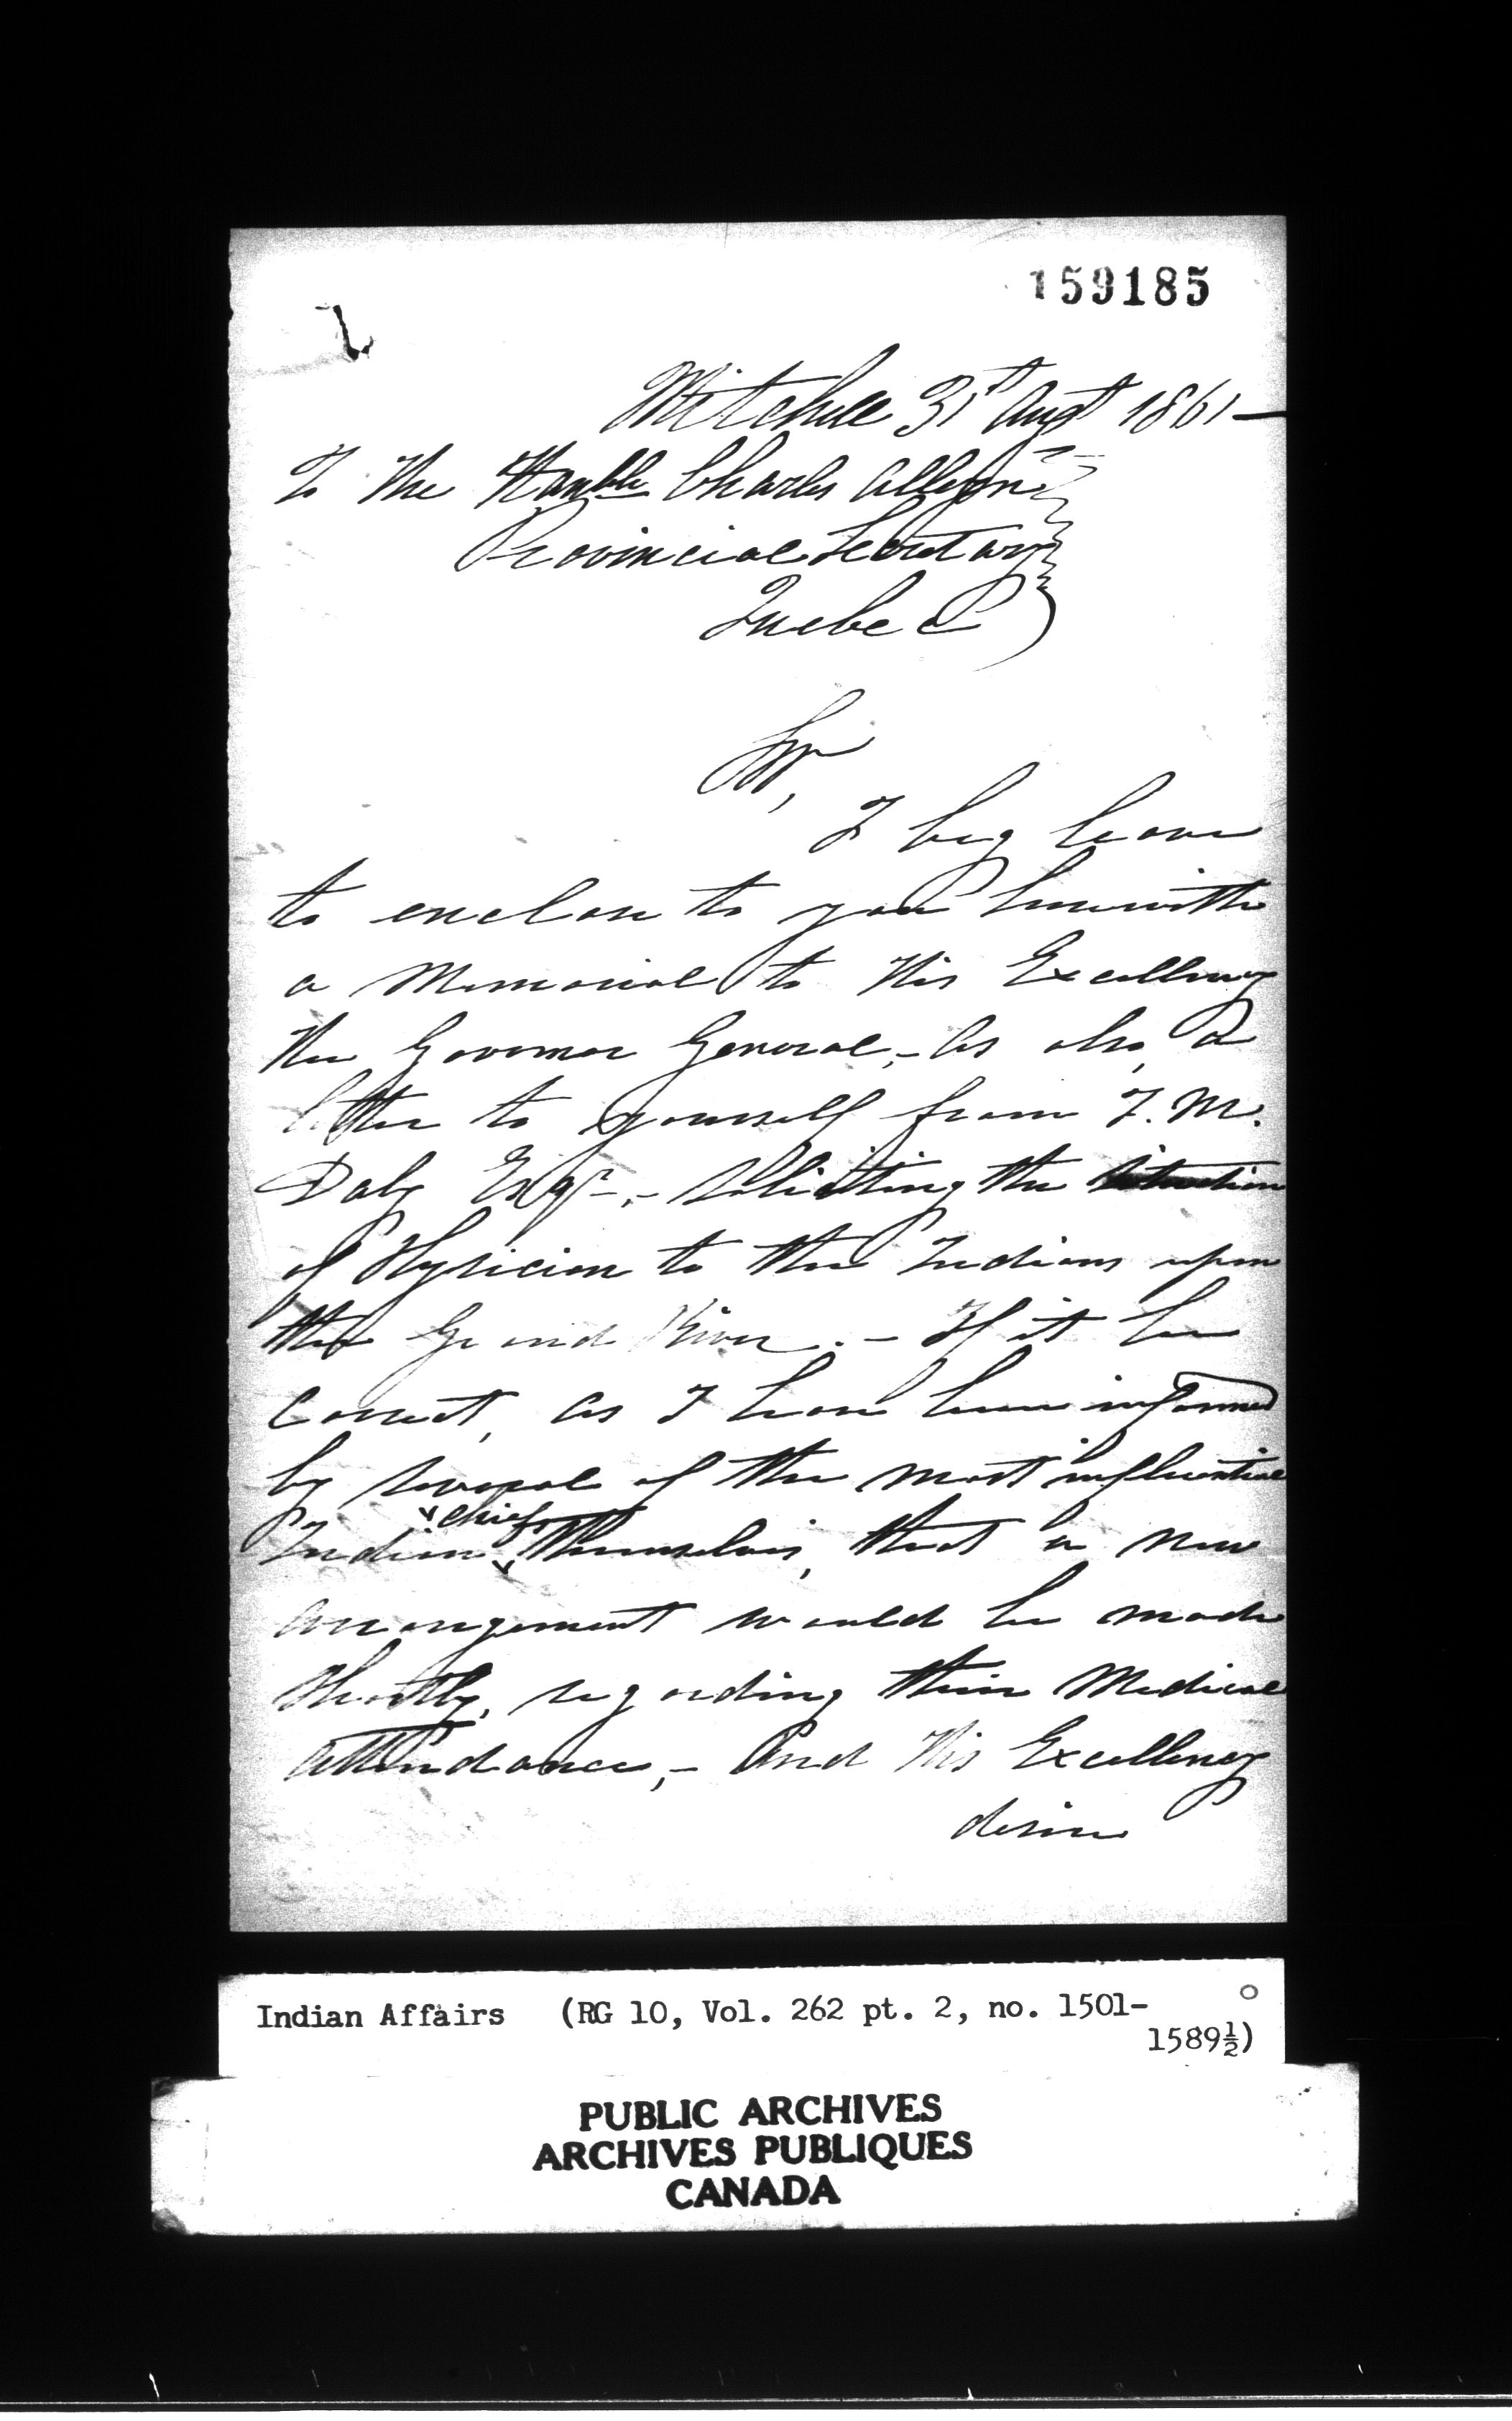 159185
Mitchell 31st Augt 1861—
To The Honble Charles Alleyn
Provincial Secretary
Quebec
Sir,
I beg leave
to enclose to you herewith
a Memorial to His Excellency
the Governor General,- As also, a
letter to yourself from T. M.
Daly Esqr-,- soliciting the situation
of Physician to the Indians upon
the Grand River.- If it be
correct, as I have been informed
by several of the most influential
chiefs
Indian themselves, that a new
arrangement would be made
shortly, regarding their Medical
attendance,- And His Excellency
desire
Indian Affairs (RG 10, Vol. 262 pt. 2, no. 1501-
1589½)
PUBLIC ARCHIVES
ARCHIVES PUBLIQUES
CANADA